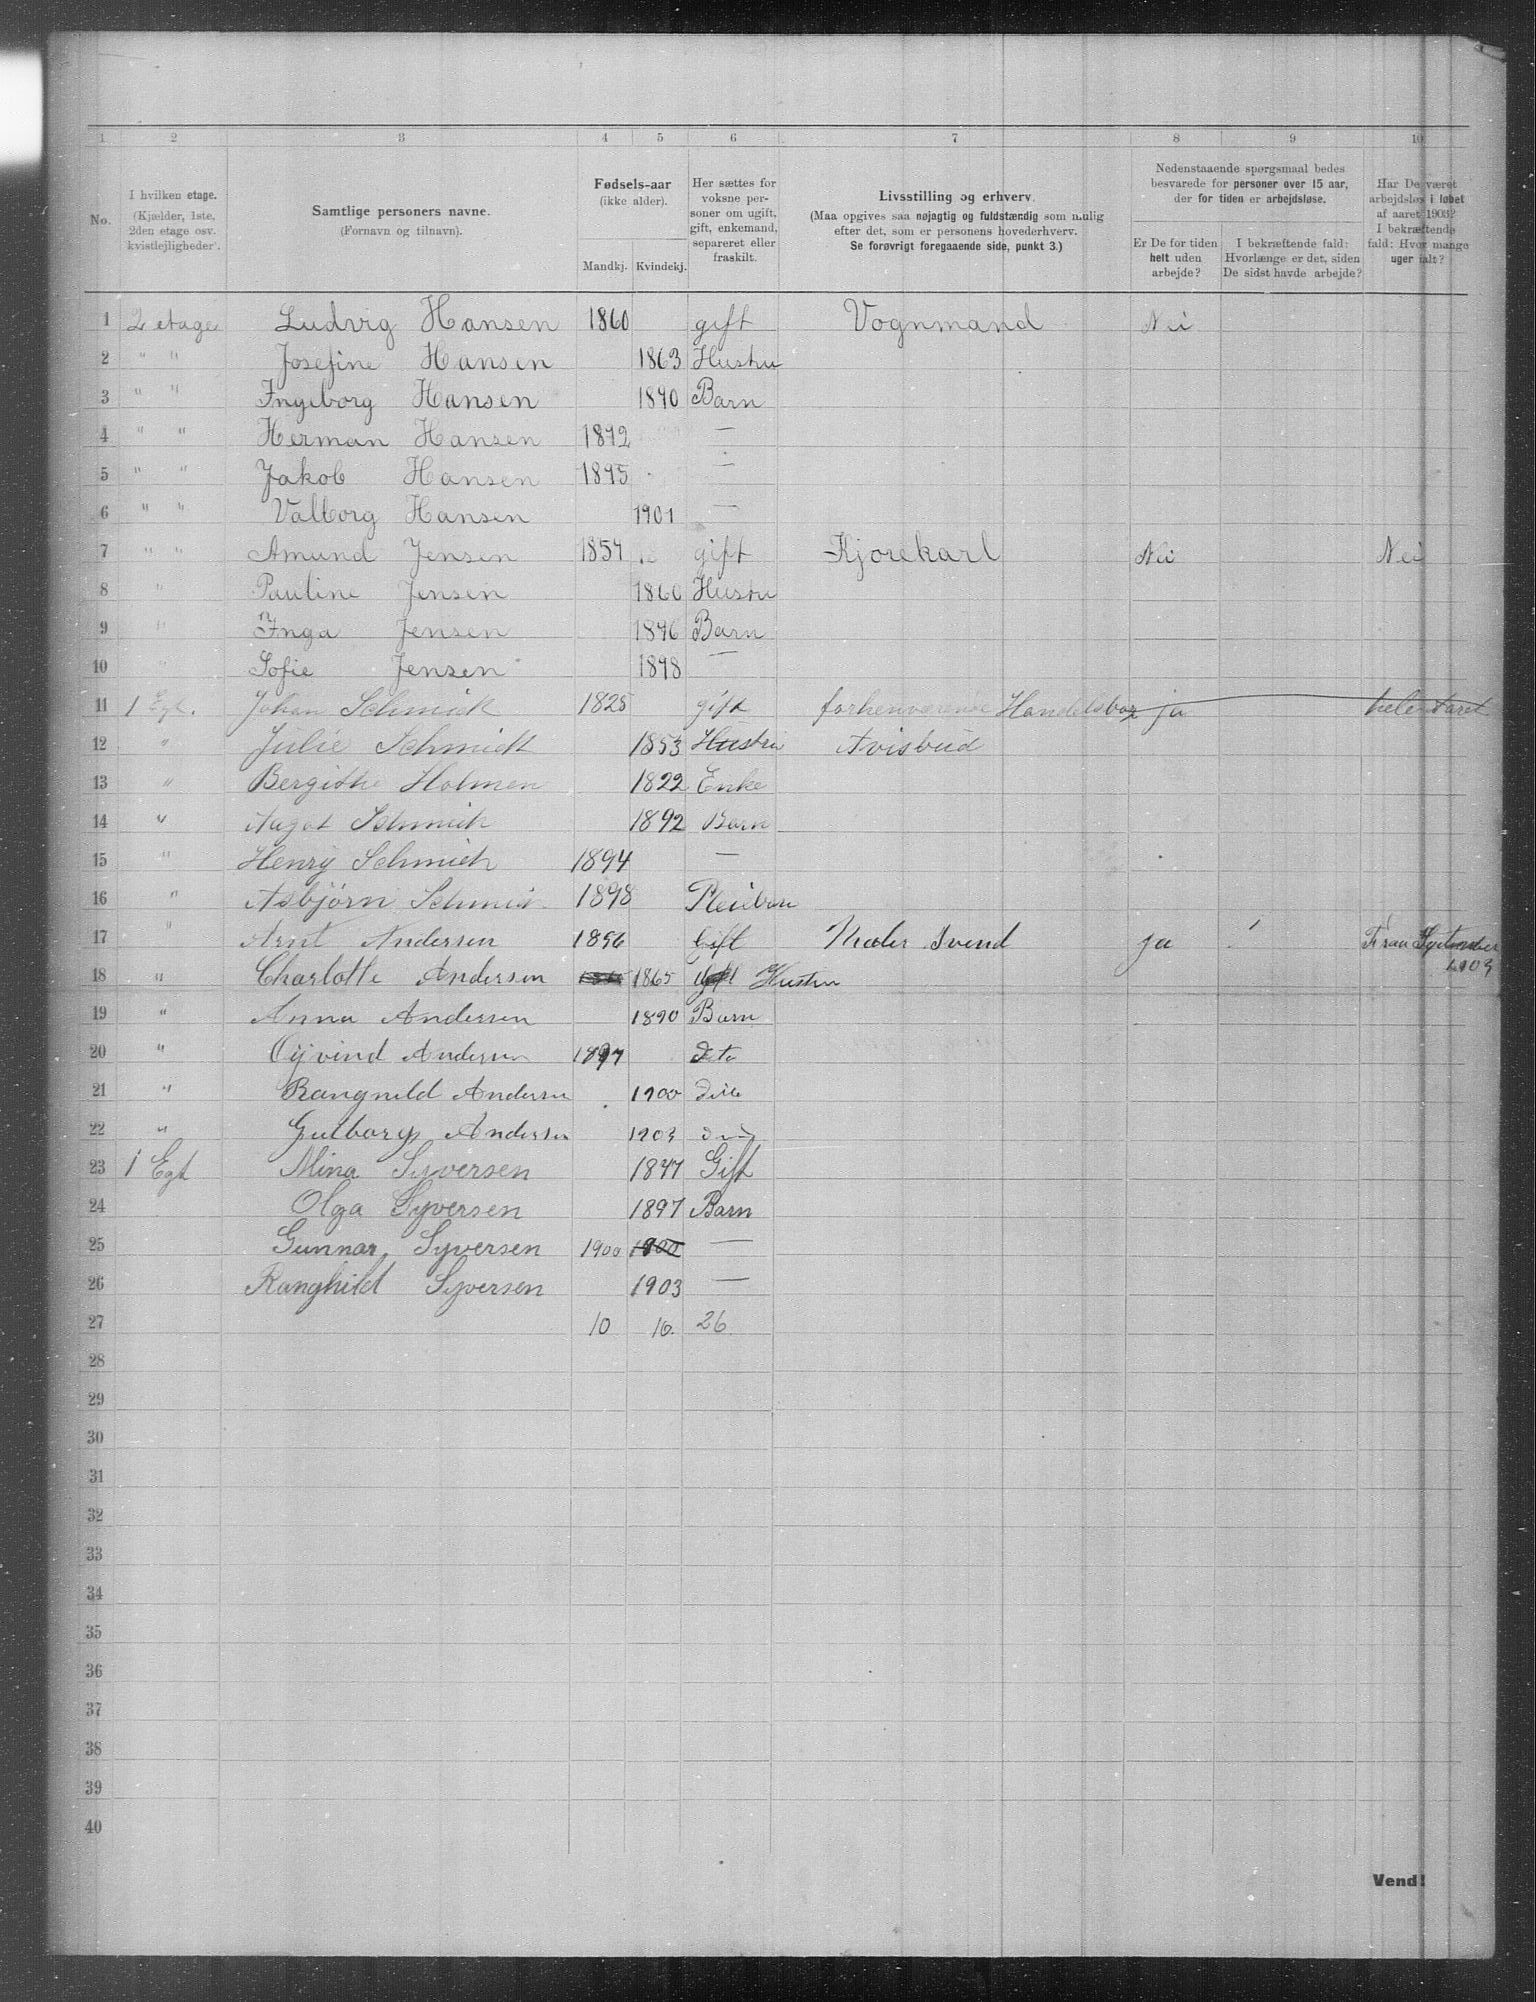 1 2 3 4 5 6 7 8 9 10
No.
I hvilken etage.
(Kjælder, 1ste,
2den etage osv.
kvistlejligheder).
Samtlige personers navne.
(Fornavn og tilnavn).
Fødsels-aar
(ikke alder).
Mandkj. Kvindekj.
Her sættes for
voksne per-
soner om ugift,
gift, enkemand,
separeret eller
fraskilt.
Livsstilling og erhverv.
(Maa opgives saa nøjagtig og fuldstændig som mulig
efter det, som er personens hovederhverv.
Se forøvrigt foregaaende side, punkt 3.)
Nedenstaaende spørgsmaal bedes
besvarede for personer over 15 aar,
der for tiden er arbejdsløse.
Er De for tiden
helt uden
arbejde?
I bekræftende fald:
Hvorlænge er det, siden
De sidst havde arbejde?
Har De været
arbejdsløs i løbet
af aaret 1903?
I bekræftende
fald: Hvor mange
uger ialt?
1 2 etage Ludvig Hansen 1860 gift Vognmand Nei
2 " " Josefine Hansen 1863 Hustru
3 " " Ingeborg Hansen 1890 Barn
4 " " Herman Hansen 1892 —
5 " " Jakob Hansen 1895 —
6 " " Valborg Hansen 1901 —
7 " " Amund Jensen 1857 gift Kjørekarl Nei Nei
8 " Pauline Jensen 1860 Hustru
9 " Inga Jensen 1896 Barn
10 " Sofie Jensen 1898 —
11 1 Egt. Johan Schmidt 1825 gift forhenværende Handelsbor ja hele taret
12 " Julie Schmidt 1853 Hustru Avisbud
13 " Bergithe Holmen 1822 Enke
14 " Aagot Schmidt 1892 Barn
15 " Henry Schmidt 1894 —
16 " Asbjörn Schmid 1898 Pleiebarn
17 " Arnt Andersen 1856 Gift Maler Svend ja / Fraa September
1903
18 " Charlotte Andersen 1865 Gift Hustru
19 " Anna Andersen 1890 Barn
20 " Öjvind Andersen 1897 dito
21 " Rangnild Andersen 1900 ditto
22 " Gulborg Andersen 1903 dito
23 1 Egt Mina Syversen 1877 Gift
24 Olga Syversen 1897 Barn
25 Gunnar, Syversen 1900 1900 —
26 Ranghild Syversen 1903 —
27 10 16. 26
28
29
30
31
32
33
34
35
36
37
38
39
40
Vend!